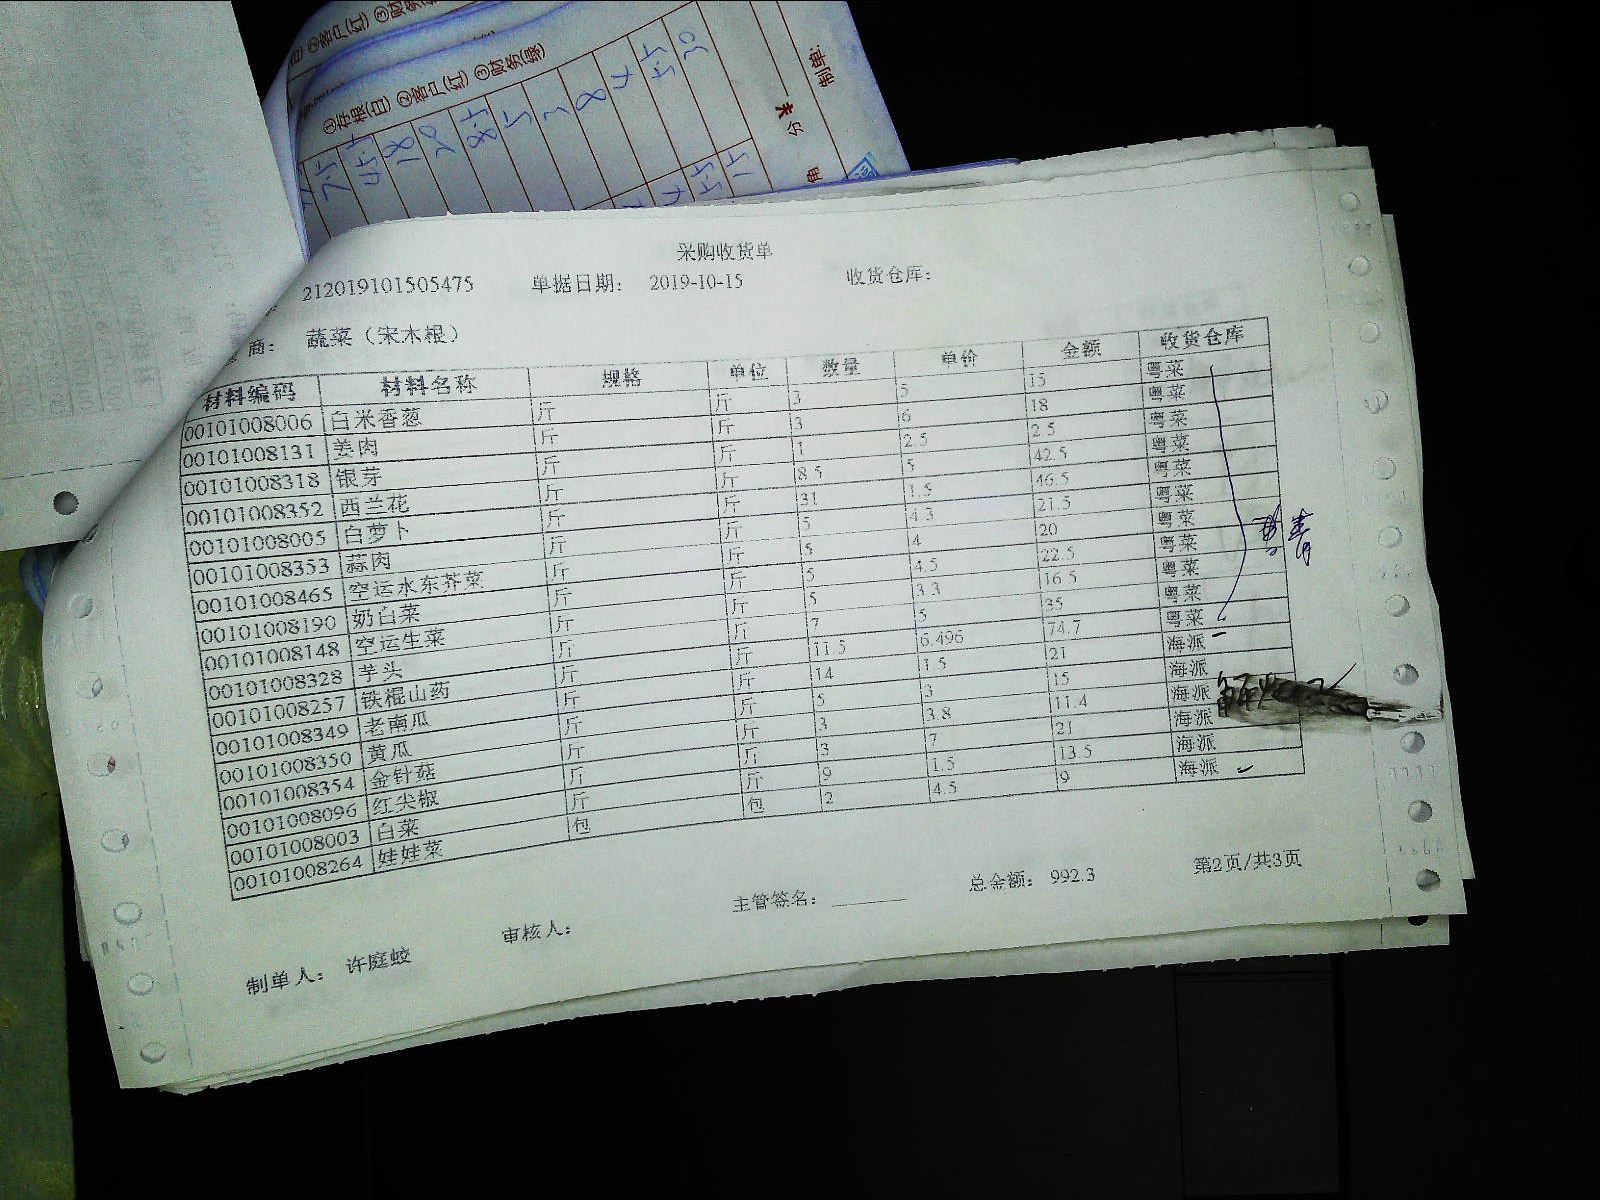 ①存根(白) ②客户(红) ③财务(绿)
制单:
分
角
采购收货单
212019101505475 单据日期: 2019-10-15 收货仓库:
商: 蔬菜（宋木根）
材料编码 材料名称 规格 单位 数量 单价 金额 收货仓库
00101008006 白米香葱 斤 斤 3 5 15 粤菜
00101008131 姜肉 斤 斤 3 6 18 粤菜
00101008318 银芽 斤 斤 1 2.5 2.5 粤菜
00101008352 西兰花 斤 斤 8.5 5 42.5 粤菜
00101008005 白萝卜 斤 斤 31 1.5 46.5 粤菜
00101008353 蒜肉 斤 斤 5 4.3 21.5 粤菜
00101008465 空运水东芥菜 斤 斤 5 4 20 粤菜
00101008190 奶白菜 斤 斤 5 4.5 22.5 粤菜
00101008148 空运生菜 斤 斤 5 3.3 16.5 粤菜
00101008328 芋头 斤 斤 7 5 35 粤菜
00101008257 铁棍山药 斤 斤 11.5 6.496 74.7 粤菜
00101008349 老南瓜 斤 斤 14 1.5 21 海派
00101008350 黄瓜 斤 斤 5 3 15 海派
00101008354 金针菇 斤 斤 3 3.8 11.4 海派
00101008096 红尖椒 斤 斤 3 7 21 海派
00101008003 白菜 斤 斤 9 1.5 13.5 海派
00101008264 娃娃菜 包 包 2 4.5 9 海派
主管签名: 总金额: 992.3 第2页/共3页
制单人: 许庭蛟 审核人: